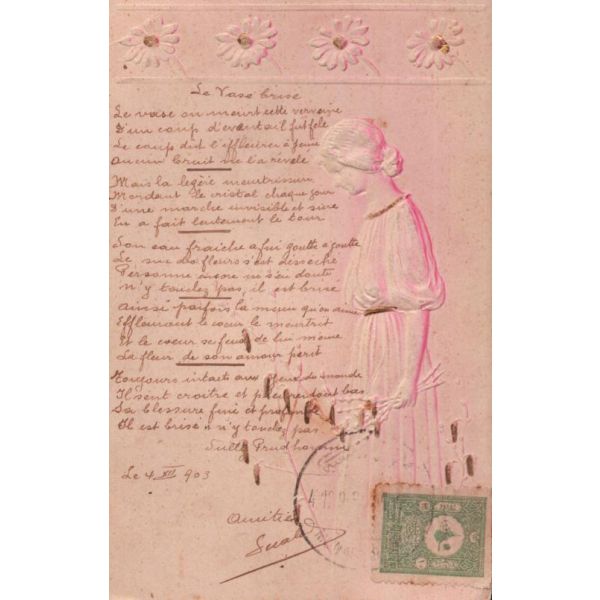 Le Vase brise
Le vase ou meurt cette verveine
D'un coup d'eventail fut fele
Le coup dut l'effleurer a peine
aucun bruit ne l'a revele
Mais la legére meurtrissure
Mordant le cristal chaque jour
D'une marche invisible et sure
En a fait lentement le tour
Son eau fraiche a fui goutte a goutte
Le suc des fleurs s'est desseche
Personne encore ne s'en doute
n'y touchez pas, il est brisé
ainsi parfois la main qu'on aime
Effleurant le cœur le meurtrit
Et le cœur se fend de lui même
La fleur de son amour perit
Toujours intacte aux yeux du monde
Il sent croitre et pleurer tout bas
Sa blessure fine et profonde
Il est brisé n'y touchez pas
Sully Prudhomme
Le 4 XII 903
Amitiés